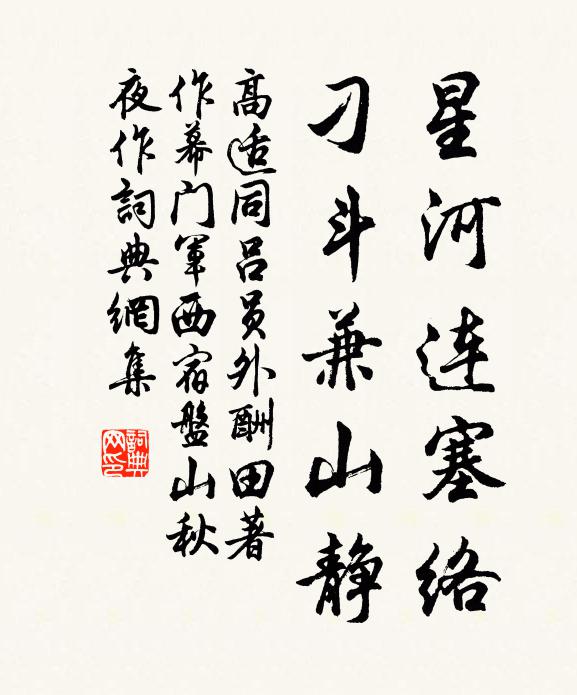 星河连塞络
刁斗兼山静
高适同吕员外酬田著
作幕门军西宿盤山秋
夜作詞典網集
詞典
网印